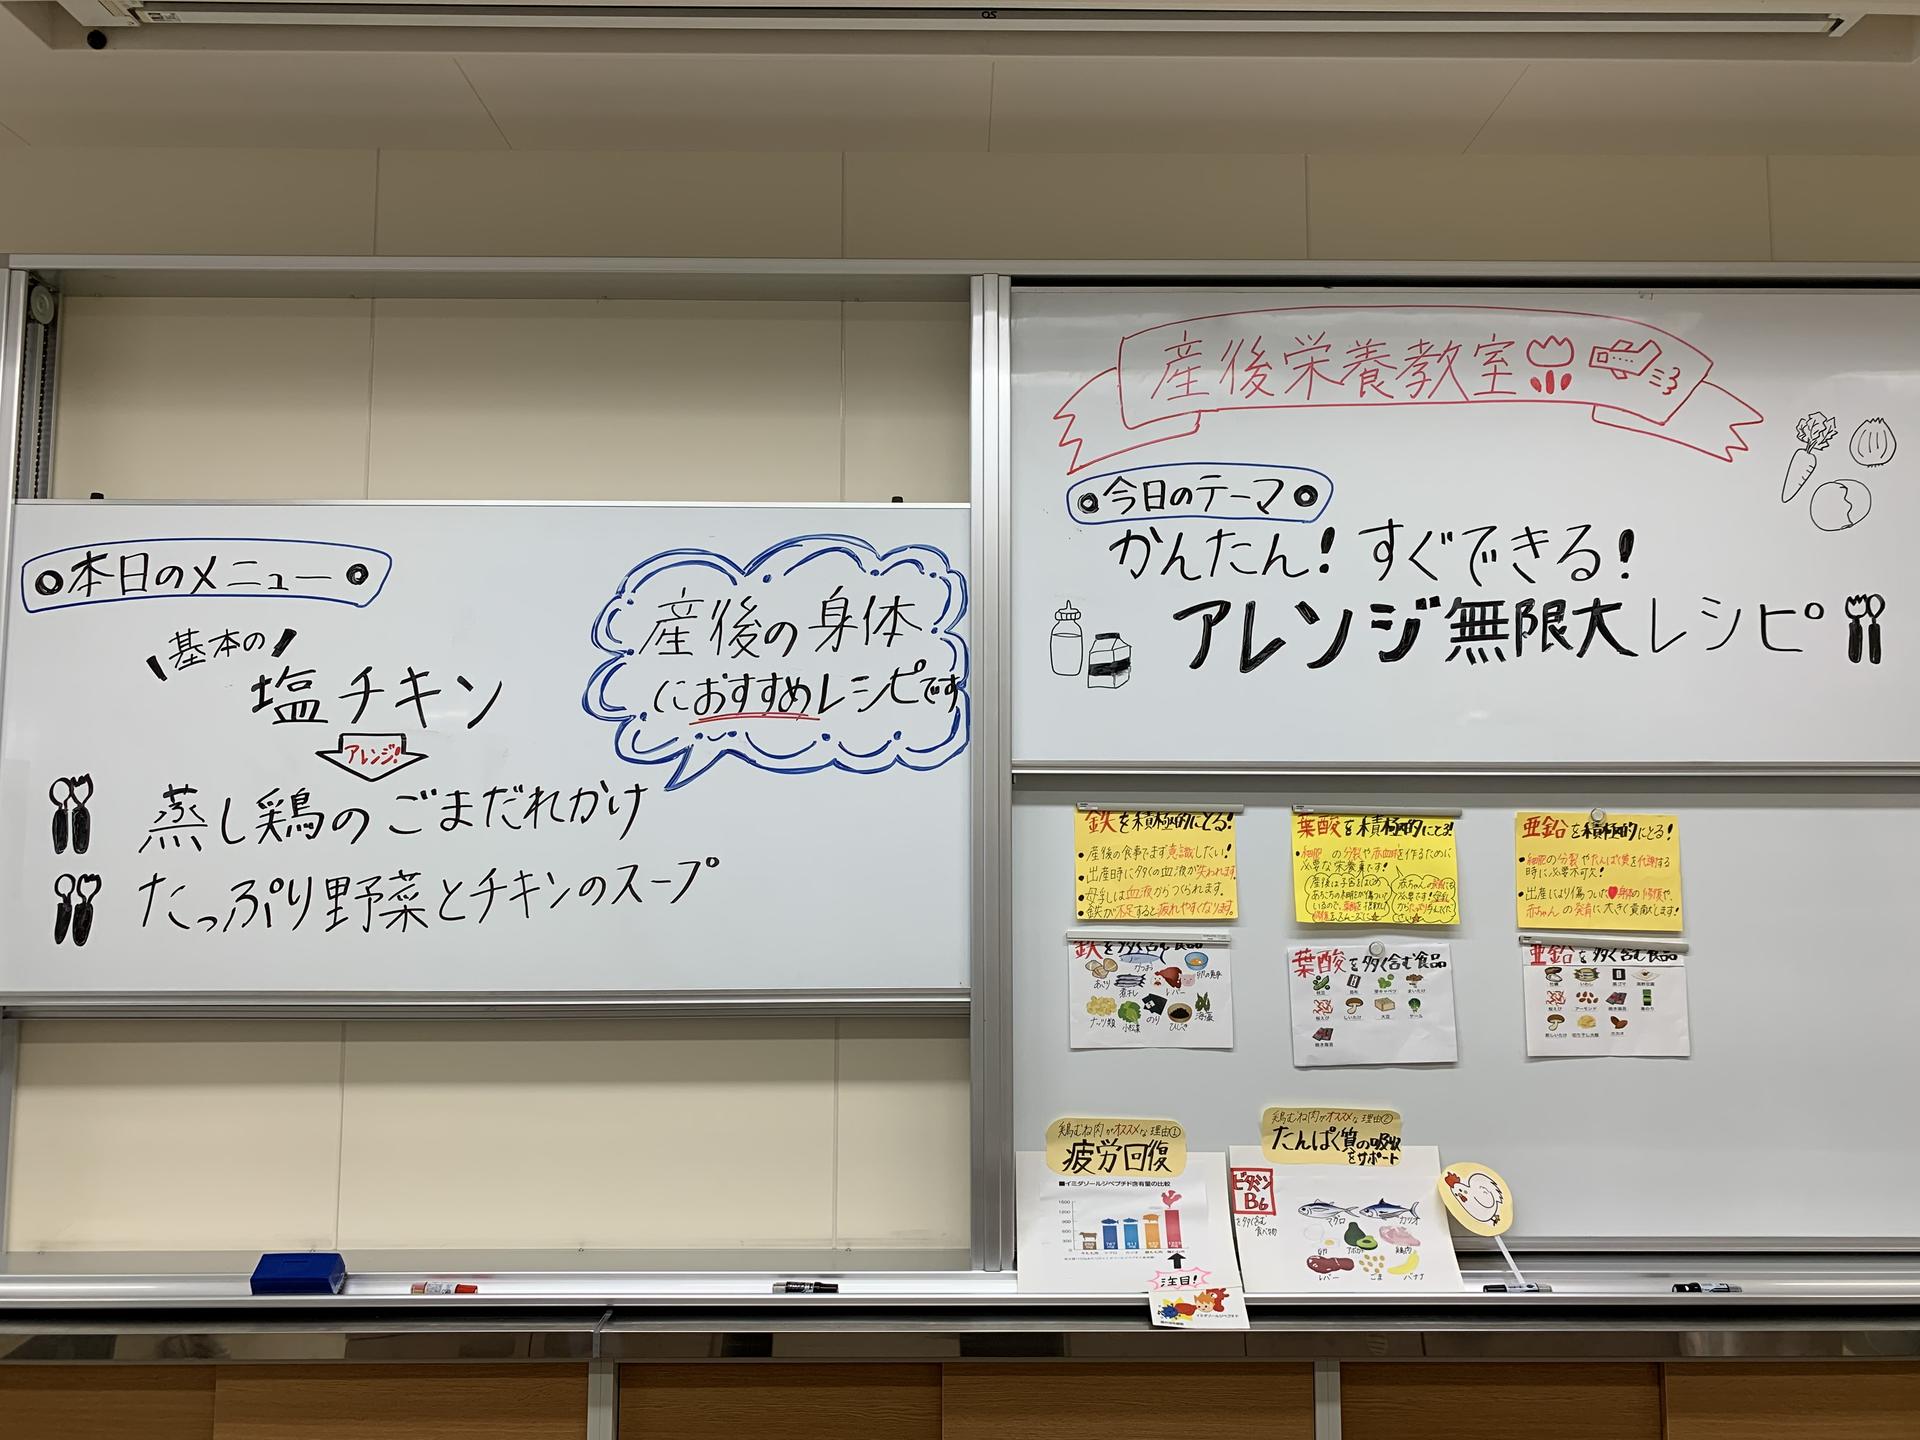 本日のメニュー
基本の
塩チキン
アレンジ!
蒸し鶏のごまだれかけ
たっぷり野菜とチキンのスープ
産後の身体
におすすめレシピです
産後栄養教室
今日のテーマ
かんたん!すぐできる!
アレンジ無限大レシピ
鉄を積極的にとる!
・産後の食事でまず意識したい!
・出産時に多くの血液が失われます
・母乳は血液からつくられます。
・鉄が不足すると疲れやすくなります。
葉酸を積極的にとる!
・細胞の分裂や赤血球を作るために
必要な栄養素です!
亜鉛を積極的にとる!
・細胞の分裂やたんぱく質を代謝する
時に必要不可欠!
・出産により傷ついた身体の修復や、
赤ちゃんの発育に大きく貢献します!
鉄を多く含む食品
かつお
あさり
煮干し
レバー
卵の黄身
ナッツ類
小松菜
のり
ひじき
海藻
葉酸を多く含む食品
枝豆
芽キャベツ
まいたけ
桜えび
しいたけ
大豆
ケール
焼き海苔
亜鉛を多く含む食品
牡蠣
いわし
高野豆腐
桜えび
アーモンド
焼き海苔
青のり
干しいたけ
切り干し大根
鶏むね肉がオススメな理由①
疲労回復
■イミダゾールジペプチド含有量の比較
1500
1200
900
600
300
0
注目!
イミダゾールジペプチド
鶏むね肉がオススメな理由②
たんぱく質の吸収
をサポート
ビタミン
B6
を多く含む
食べ物
マグロ
カツオ
卵
アボカド
鶏肉
レバー
ごま
バナナ